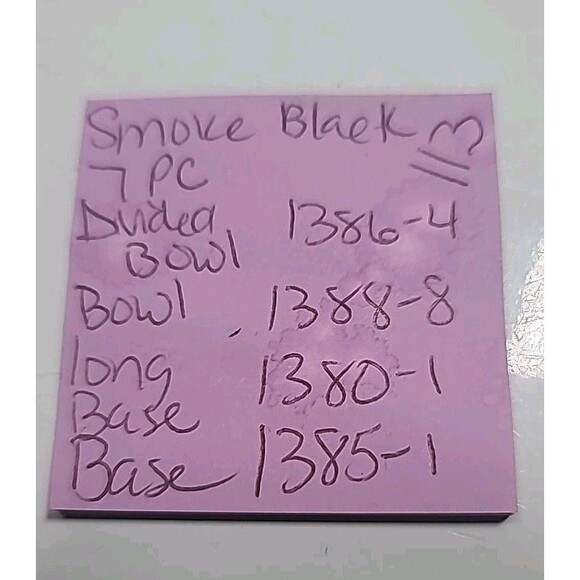 Smoke Black M
7 PC
Divided 1386-4
Bowl
Bowl 1388-8
long 1380-1
Base
Base 1385-1